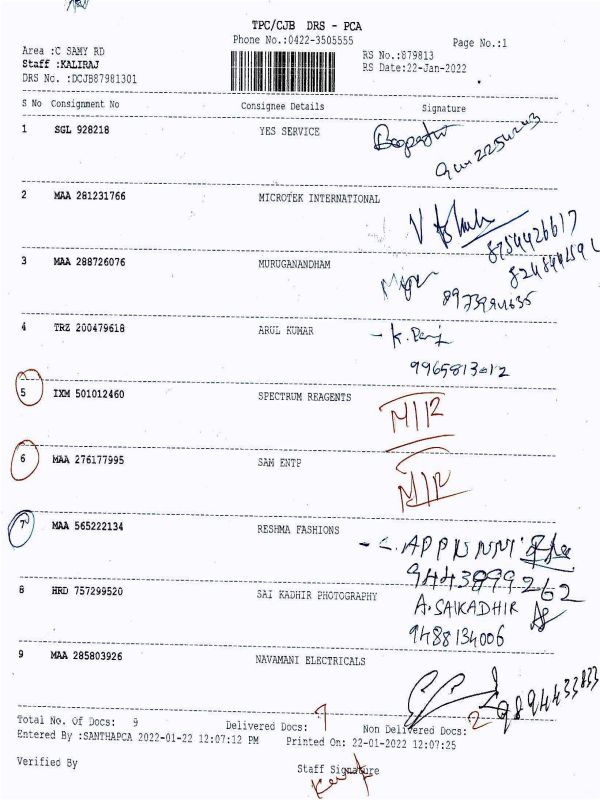 TPC/CJB DRS - PCA
Phone No.:0422-3505555
Page No.:1
Area :C SAMY RD
RS No.:879813
Staff :KALIRAJ
RS Date:22-Jan-2022
DRS No. :DCJB87981301
S No Consignment No Consignee Details Signature
1 SGL 928218 YES SERVICE
2 MAA 281231766 MICROTEK INTERNATIONAL
8754426617
3 MAA 288726076 MURUGANANDHAM
4 TRZ 200479618 ARUL KUMAR
9965813012
5 IXM 501012460 SPECTRUM REAGENTS
6 MAA 276177995 SAM ENTP
7 MAA 565222134 RESHMA FASHIONS
9443899262
8 HRD 757299520 SAI KADHIR PHOTOGRAPHY
A. SAIKADHIR
9488134006
9 MAA 285803926 NAVAMANI ELECTRICALS
9894433833
Total No. Of Docs: 9 Delivered Docs: 7 Non Delivered Docs: 2
Entered By :SANTHAPCA 2022-01-22 12:07:12 PM Printed On: 22-01-2022 12:07:25
Verified By Staff Signature